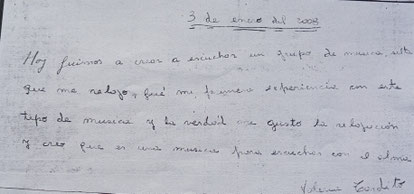 3 de enero del 2008
Hoy fuimos a cros a escuchar un grupo de musica,
que me relajo, fué mi primera experiencia con este
tipo de musica y la verdad me gusto la relajación
Y creo que es una musica para escuchar con el alma